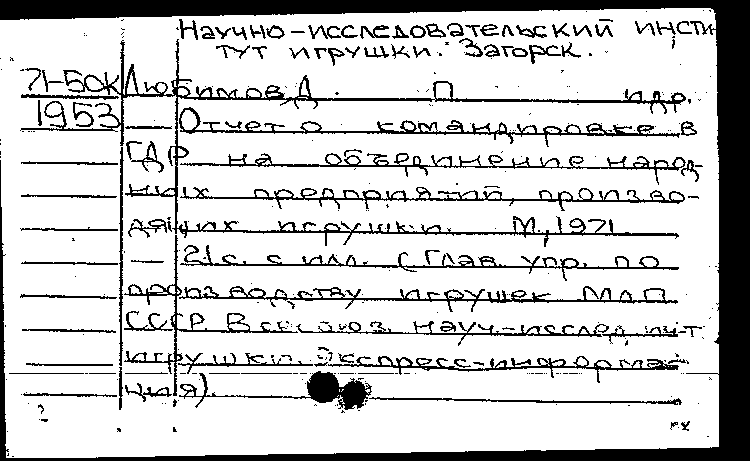 Научно-исследовательский инсти-
тут игрушки. Загорск.
71-50к Любимов, Д. П и др.
1953 Отчет о командировке в
ГДР на объединение народ-
ных предприятий, произво-
дящих игрушки. М., 1971
— 21 с. с илл. (Глав. упр. по
производству игрушек МЛП
СССР. Всесоюз. науч-исслед. ин-т
игрушки. Экспресс-информа-
ция).